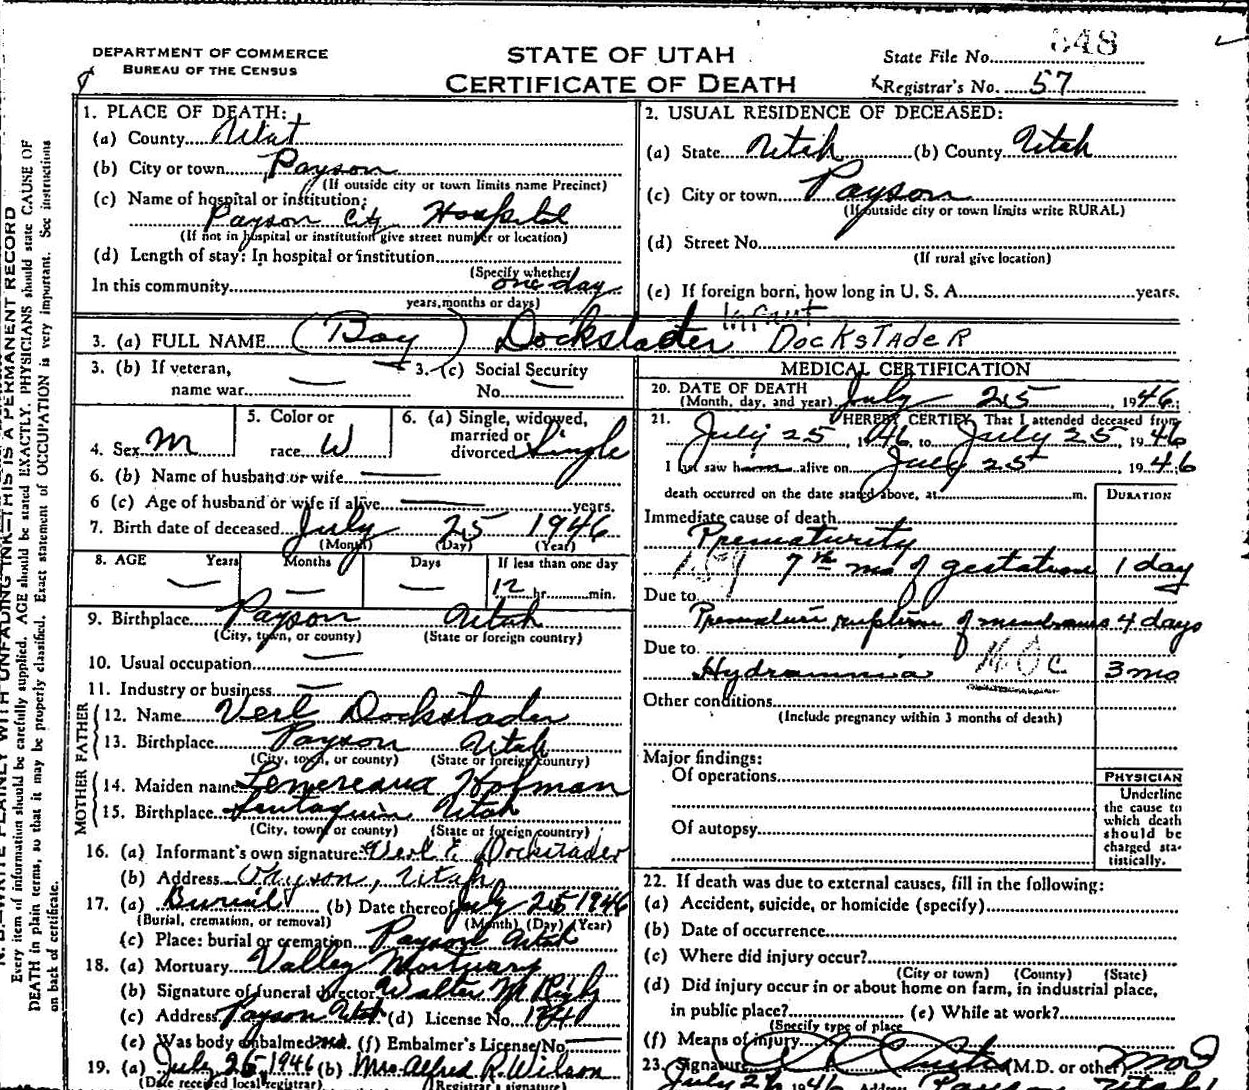 DEPARTMENT OF COMMERCE
BUREAU OF THE CENSUS
STATE OF UTAH
CERTIFICATE OF DEATH
State File No. 548
Registrar's No. 57
1. PLACE OF DEATH:
(a) County
(b) City or town Payson
(If outside city or town limits name Precinct)
(c) Name of hospital or institution:
Payson City Hospital
(If not in hospital or institution give street number or location)
(d) Length of stay: In hospital or institution
(Specify whether
In this community one day
years, months or days)
2. USUAL RESIDENCE OF DECEASED:
(a) State Utah (b) County Utah
(c) City or town Payson
(If outside city or town limits write RURAL)
(d) Street No.
(If rural give location)
(e) If foreign born, how long in U. S. A. years.
Infant
3. (a) FULL NAME (Boy) Dockstader DOCKSTADER
3. (b) If veteran,
name war
3. (c) Social Security
No.
4. Sex M
5. Color or
race W
6. (a) Single, widowed,
married or
divorced Single
6. (b) Name of husband or wife
6 (c) Age of husband or wife if alive years.
7. Birth date of deceased July 25 1946
(Month) (Day) (Year)
8. AGE Years Months Days If less than one day
12 hr. min.
9. Birthplace Payson Utah
(City, town, or county) (State or foreign country)
10. Usual occupation
11. Industry or business
FATHER
12. Name Verl Dockstader
13. Birthplace Payson Utah
(City, town, or county) (State or foreign country)
MOTHER
14. Maiden name Hofman
15. Birthplace Santaquin Utah
(City, town or county) (State or foreign country)
16. (a) Informant's own signature Verl E. Dockstader
(b) Address Payson, Utah
17. (a) Burial (b) Date thereof July 25 1946
(Burial, cremation, or removal) (Month) (Day) (Year)
(c) Place: burial or cremation Payson Utah
18. (a) Mortuary Valley Mortuary
(b) Signature of funeral director Walter
(c) Address Payson Utah (d) License No.
(e) Was body embalmed no. (f) Embalmer's License No.
19. (a) July 26, 1946 (b) Mrs. Alfred R. Wilson
(Date received local registrar) (Registrar's signature)
MEDICAL CERTIFICATION
20. DATE OF DEATH
(Month, day, and year) July 25, 1946.
21. I HEREBY CERTIFY, That I attended deceased from
July 25, 1946, to July 25, 1946
I last saw him alive on July 25, 1946
death occurred on the date stated above, at m.
DURATION
Immediate cause of death
Prematurity
159 7th mo of gestation 1 day
Due to
Premature rupture of membranes 4 days
Due to
Hydramnia 3 mo
Other conditions
(Include pregnancy within 3 months of death)
Major findings:
Of operations
Of autopsy
PHYSICIAN
Underline
the cause to
which death
should be
charged sta-
tistically.
22. If death was due to external causes, fill in the following:
(a) Accident, suicide, or homicide (specify)
(b) Date of occurrence
(c) Where did injury occur?
(City or town) (County) (State)
(d) Did injury occur in or about home on farm, in industrial place,
in public place? (e) While at work?
(Specify type of place
(f) Means of injury
23. Signature (M.D. or other) MD
July 26 1946 Address Payson Utah
N. B.—WRITE PLAINLY WITH UNFADING INK—THIS IS A PERMANENT RECORD
Every item of information should be carefully supplied. AGE should be stated EXACTLY. PHYSICIANS should state CAUSE OF
DEATH in plain terms, so that it may be properly classified. Exact statement of OCCUPATION is very important. See instructions
on back of certificate.